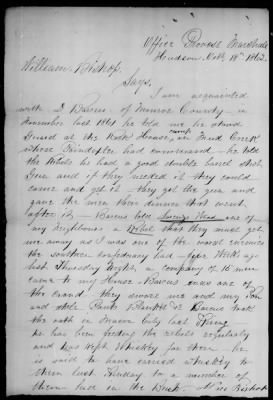 Office Provost Marshall
Hudson Oct 18th 1862
William Bishop.
Says.
I am acquainted
with J. Barnes of Monroe County - in
November last 1861 he told me he stood
Guard at the Rock House, camp on Mud Creek
where Poindexter had command - he told
the Rebels he had a good double barrel shot
Gun and if they needed it they could
come and get it - they got the gun and
gave the men their dinner that went
after it - Barnes told one
of my neighbours a Rebel that they must get
me away as I was one of the worst enemies
the southern confederacy had - four weeks ago
last Thursday night, a company of 15 men
came to my House - Barnes was one of
the band - they swore me and my Son
and stole Pants Blankets &c Barnes took
the oath in Macon City last Spring
he has been feeding the rebels regularly
and has kept Whiskey for them - he
is said to have carried Whiskey to
them last Sunday to a number of
them hid in the Brush - Bishop